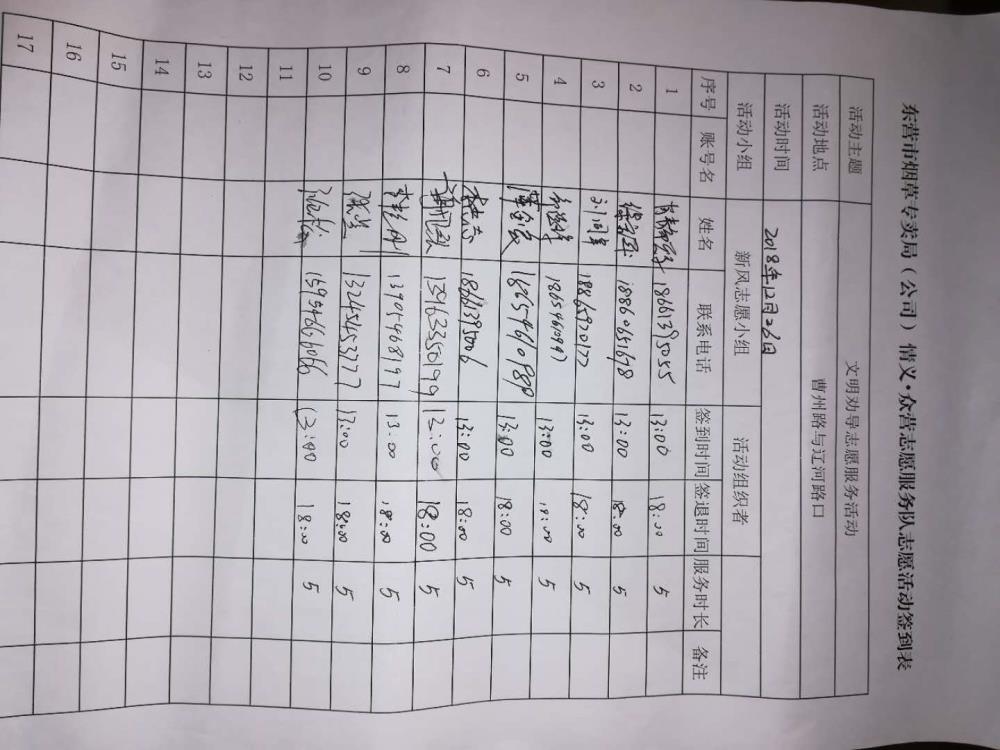 东营市烟草专卖局（公司）情义·众营志愿服务队志愿活动签到表
活动主题 文明劝导志愿服务活动
活动地点 曹州路与辽河路口
活动时间 2018年12月26日
活动小组 新风志愿小组 活动组织者
序号 账号名 姓名 联系电话 签到时间 签退时间 服务时长 备注
1 18661395055 13:00 18:00 5
2 18860651678 13:00 18:00 5
3 18865920177 13:00 18:00 5
4 13:00 18:00 5
5 13:00 18:00 5
6 18661395006 13:00 18:00 5
7 13963350199 13:00 18:00 5
8 13905468197 13:00 18:00 5
9 13245453777 13:00 18:00 5
10 15954666066 13:00 18:00 5
11
12
13
14
15
16
17